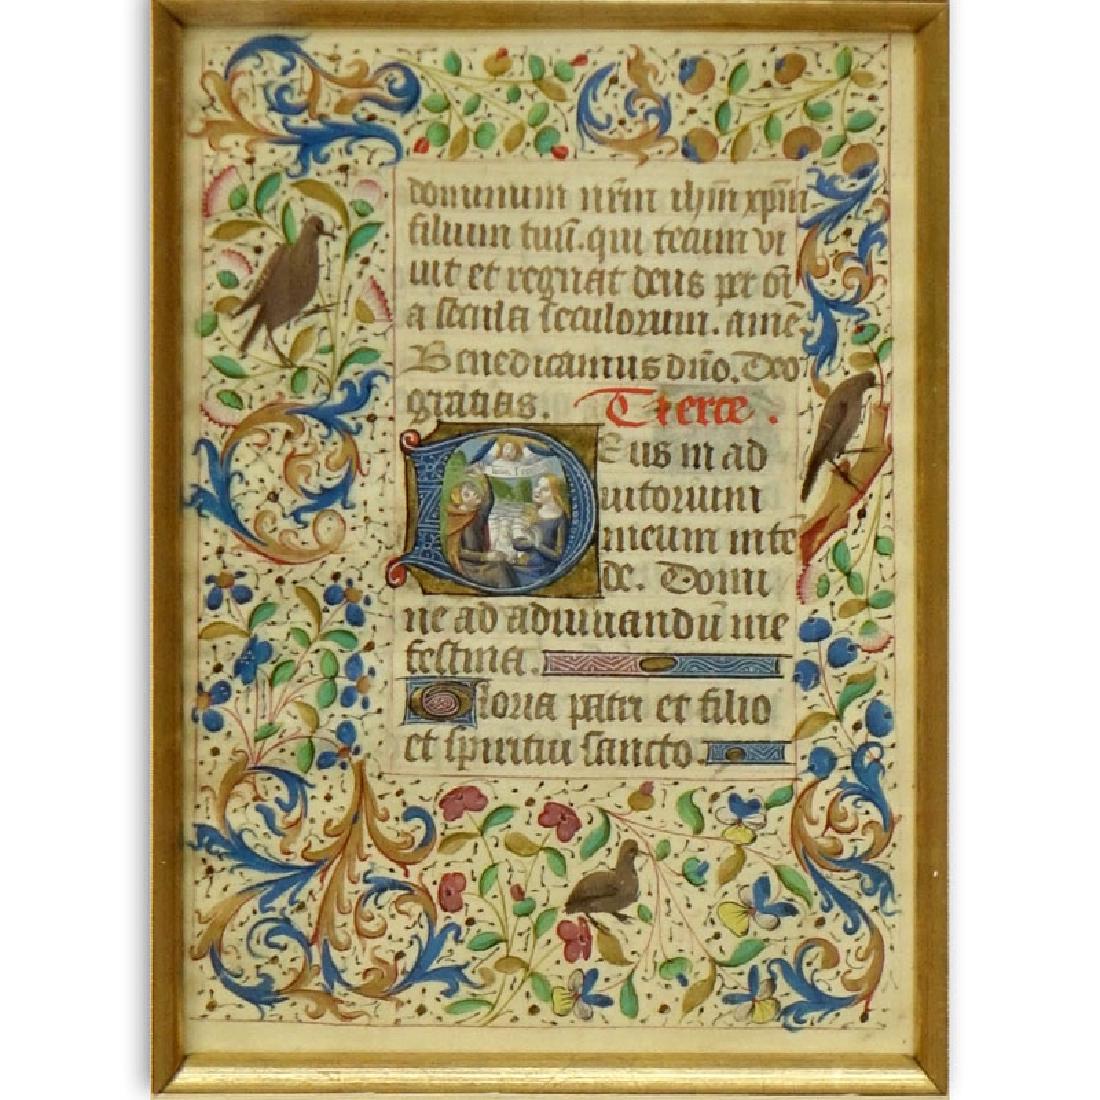 dominum nr̄m ihm̄ xpm̄
filium tuū. qui tecum vi
uit et regnat deus per oī
a secula seculorum. amē
Benedicamus dn̄o. Deo
gratias. Tierce.
Deus in ad
iutorium
meum intē
de. Domi
ne ad adiuuandū me
festina.
Gloria patri et filio
et spiritui sancto.